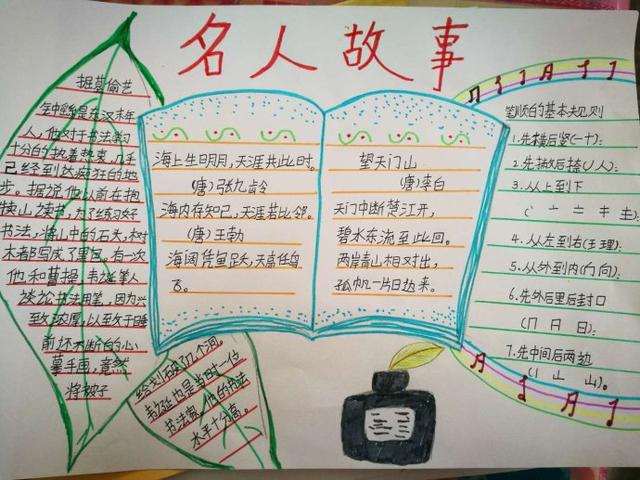 名人故事
掘墓偷艺
钟繇是东汉末年
人，他对于书法学习
十分的执着热衷，几乎
己经到达疯狂的地
步。据说他以前在抱
犊山读书，为了练习好
书法，将山中的石头，树
木都写成了黑色。有一次
他和曹操、韦诞等人
谈论书法用笔，因为兴
致浓厚，以至于于睡
前还不断的在心
摹手画，竟然
将被子
给划破了几个洞。
韦诞也是当时一位
书法家，他的书法
水平十分高。
海上生日月月，天涯共此时。
(唐)张九龄
海内存知己，天涯若比邻。
(唐)王勃
海阔凭鱼跃，天高任鸟
飞。
望天门山
(唐)李白
天门中断楚江开，
碧水东流至此回。
两岸青山相对出，
孤帆一片日边来。
笔顺的基本规则
1.先横后竖(一十)：
2.先撇后捺(丿人)；
3.从上到下
(丶亠二キ主)
4.从左到右(王理)；
5.从外到内(勹向)；
6.先外后里后封口
(冂月日)；
7.先中间后两边
(亅山)。